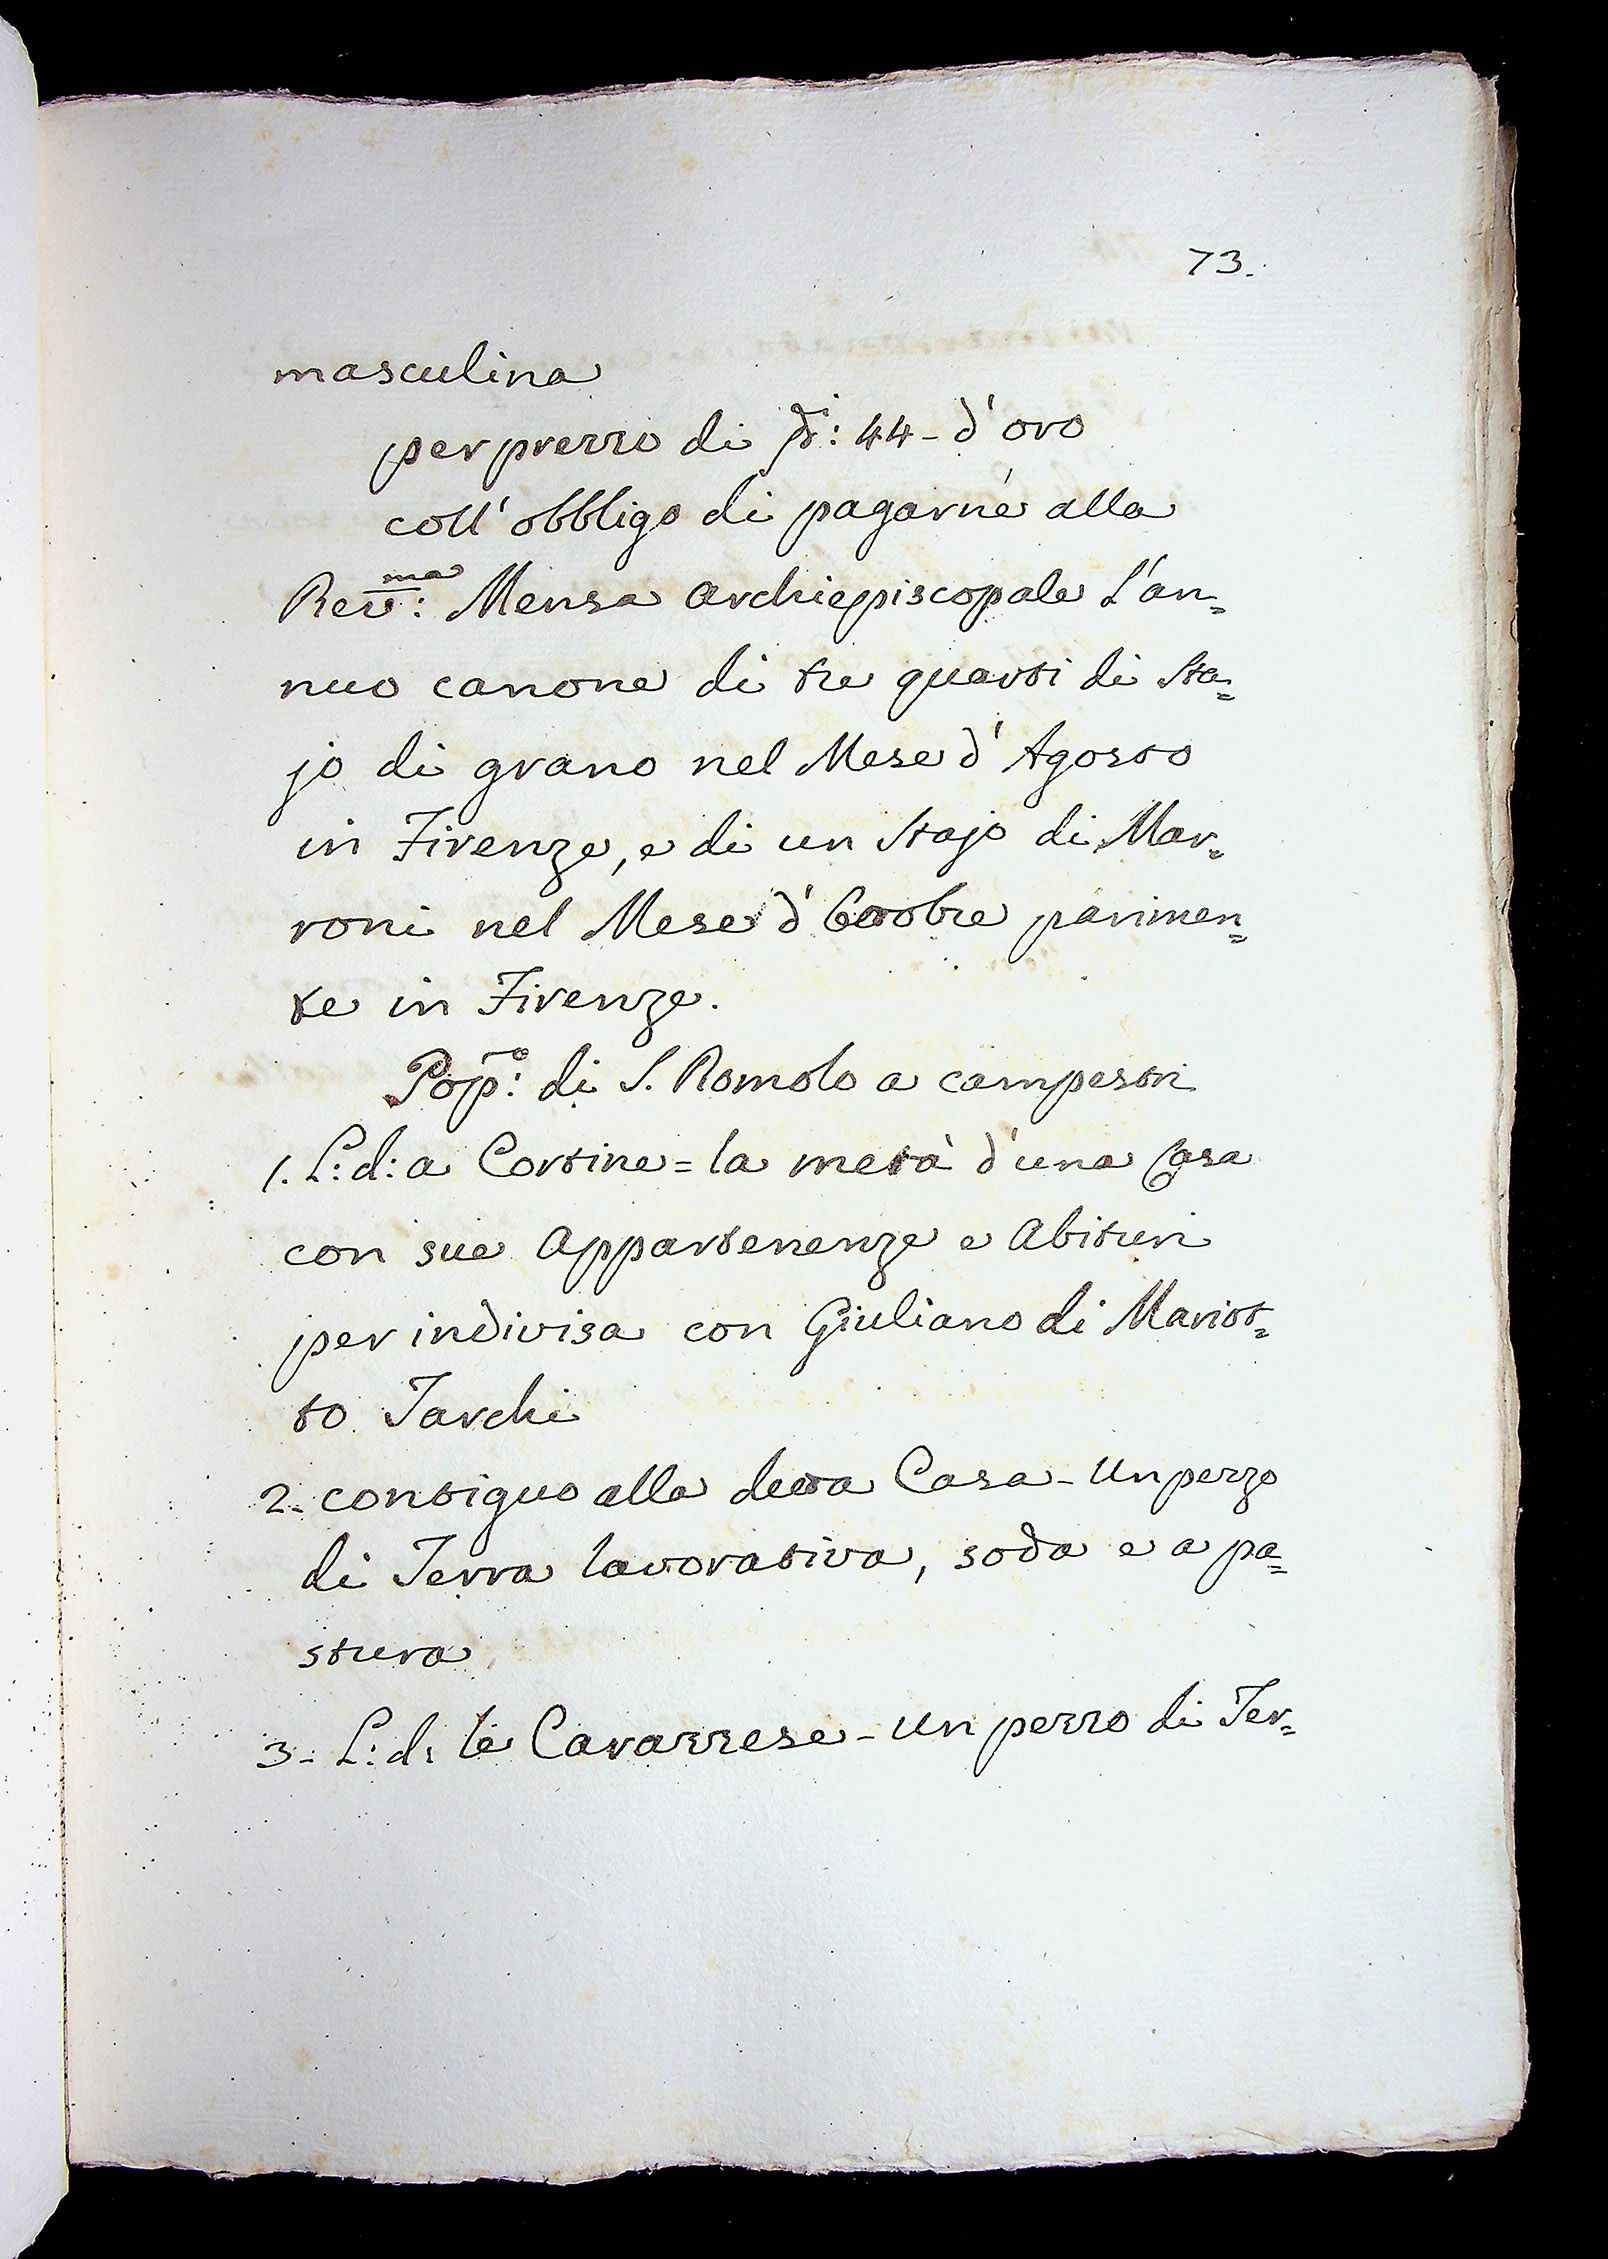 73.
masculina
per prezzo di fi: 44 - d'oro
coll'obbligo di pagarne alla
Rev:ma Mensa Archiepiscopale l'an=
nuo canone di tre quarti di sta=
jo di grano nel Mese d'Agosto
in Firenze, e di un stajo di Mar=
roni nel Mese d'Ottobre parimen=
te in Firenze.
Pop:o di S. Romolo a campestri
1. L: d: a Cortine = la metà d'una Casa
con sue Appartenenze e Abituri
per indivisa con Giuliano di Mariot=
to Tarchi
2. contiguo alla detta Casa - Un pezzo
di Terra lavorativa, soda e a pa=
stura
3. L: d: le Cavarzese - Un pezzo di Ter=